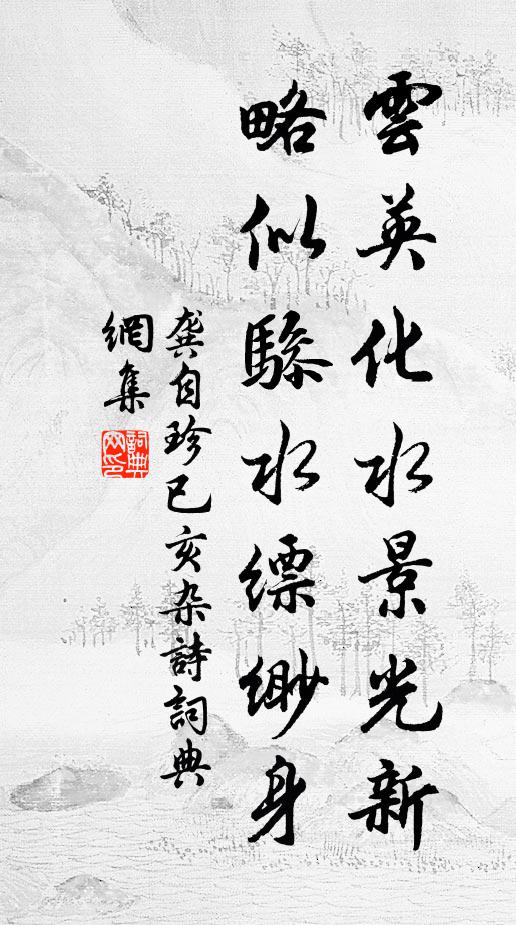 雲英化水景光新
略似驂水縹緲身
龔自珍已亥杂詩詞典
網集
詞典
网印